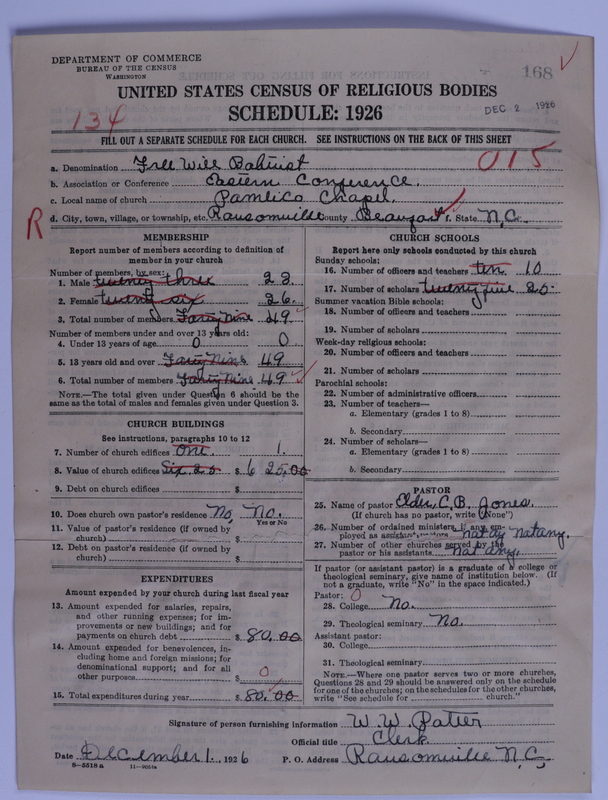 DEPARTMENT OF COMMERCE
BUREAU OF THE CENSUS
WASHINGTON
168
UNITED STATES CENSUS OF RELIGIOUS BODIES
DEC 2 1926
134
SCHEDULE: 1926
FILL OUT A SEPARATE SCHEDULE FOR EACH CHURCH. SEE INSTRUCTIONS ON THE BACK OF THIS SHEET
a. Denomination Free Will Baptist
015
b. Association or Conference Eastern Conference.
c. Local name of church Pamlico Chapel.
R
d. City, town, village, or township, etc. Ransomville County Beaufort f. State N.C.
MEMBERSHIP
Report number of members according to definition of
member in your church
Number of members, by sex:
1. Male twenty three 23
2. Female twenty six 26.
3. Total number of members Forty Nine 49
Number of members under and over 13 years old:
4. Under 13 years of age 0 0
5. 13 years old and over Forty Nine 49
6. Total number of members Forty Nine 49
NOTE.—The total given under Question 6 should be
same as the total of males and females given under Question 3.
CHURCH BUILDINGS
See instructions, paragraphs 10 to 12
7. Number of church edifices one. 1.
8. Value of church edifices Six 25 $ 6 25.00
9. Debt on church edifices $
10. Does church own pastor's residence No, No.
Yes or No
11. Value of pastor's residence (if owned by
church) $
12. Debt on pastor's residence (if owned by
church) $
EXPENDITURES
Amount expended by your church during last fiscal year
13. Amount expended for salaries, repairs,
and other running expenses; for im-
provements or new buildings; and for
payments on church debt $ 80.00
14. Amount expended for benevolences, in-
cluding home and foreign missions; for
denominational support; and for all
other purposes $ 0
15. Total expenditures during year $ 80.00
CHURCH SCHOOLS
Report here only schools conducted by this church
Sunday schools:
16. Number of officers and teachers ten 10
17. Number of scholars twenty five 25.
Summer vacation Bible schools:
18. Number of officers and teachers
19. Number of scholars
Week-day religious schools:
20. Number of officers and teachers
21. Number of scholars
Parochial schools:
22. Number of administrative officers
23. Number of teachers—
a. Elementary (grades 1 to 8)
b. Secondary
24. Number of scholars—
a. Elementary (grades 1 to 8)
b. Secondary
PASTOR
25. Name of pastor Elder, C. B. Jones.
(If church has no pastor, write "None")
26. Number of ordained ministers, if any, em-
ployed as assistant not any not any.
27. Number of other churches served by the
pastor or his assistants not any.
If pastor (or assistant pastor) is a graduate of a college or
theological seminary, give name of institution below. (If
not a graduate, write "No" in the space indicated.)
Pastor: 0
28. College No.
29. Theological seminary No.
Assistant pastor:
30. College
31. Theological seminary
NOTE.—Where one pastor serves two or more churches,
Questions 28 and 29 should be answered only on the schedule
for one of the churches; on the schedules for the other churches,
write "See schedule for church."
Signature of person furnishing information W. W.
Official title Clerk
Date December 1., 1926 P. O. Address Ransomville N.C.
8-5518a